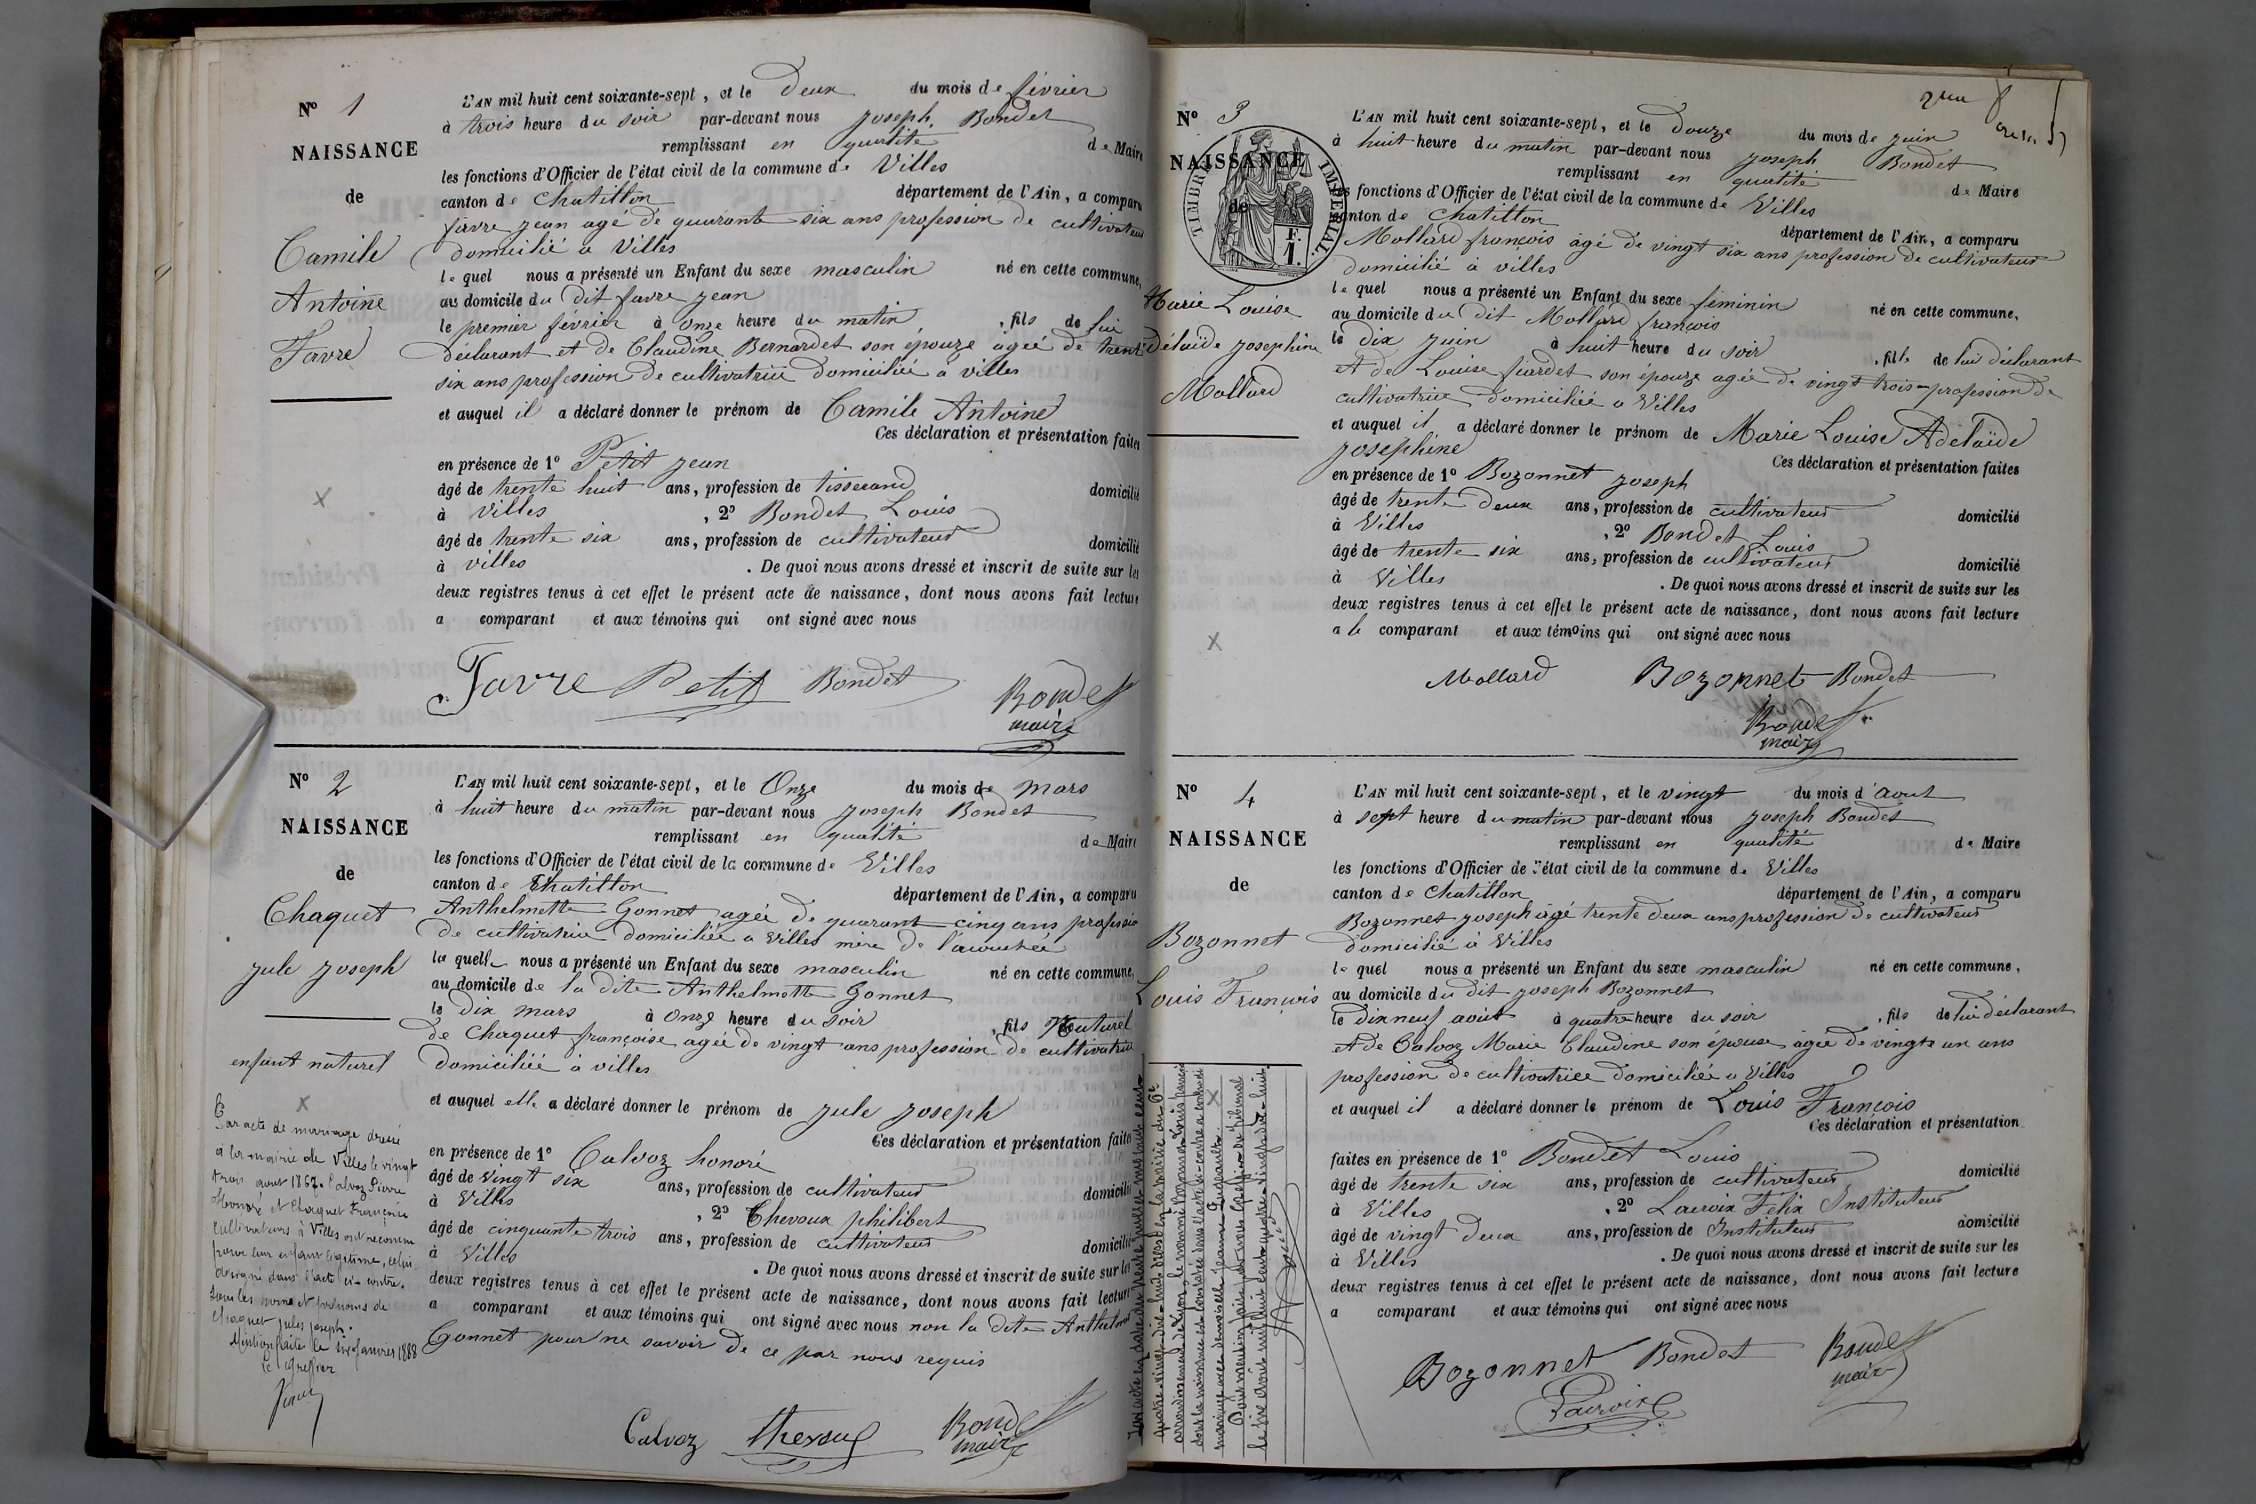 N° 1
NAISSANCE
de
Camile
Antoine
Favre
L'AN mil huit cent soixante-sept, et le Deux du mois de février
à trois heure du soir par-devant nous Joseph Bondet
remplissant en qualité de Maire
les fonctions d'Officier de l'état civil de la commune de Villes
canton de Chatillon département de l'Ain, a comparu
favre jean agé de quarante six ans profession de cultivateur
domicilié a Villes
le quel nous a présenté un Enfant du sexe masculin né en cette commune,
au domicile du dit favre jean
le premier février à Onze heure du matin , fils de lui
déclarant et de Claudine Bernardet son épouze agée de trente
six ans profession de cultivatrice domiciliée a villes
et auquel il a déclaré donner le prénom de Camile Antoine
Ces déclaration et présentation faites
en présence de 1° Petit jean
âgé de trente huit ans, profession de tisserand domicilié
à Villes , 2° Bondet Louis
âgé de trente six ans, profession de cultivateur domicilié
à villes . De quoi nous avons dressé et inscrit de suite sur les
deux registres tenus à cet effet le présent acte de naissance, dont nous avons fait lecture
a comparant et aux témoins qui ont signé avec nous
Favre Petit Bondet Bondet
maire
N° 2
NAISSANCE
de
Chaquet
jule joseph
enfant naturel
Par acte de mariage dressé
à la mairie de Villes le vingt
trois aout 1867. Calvoz Pierre
Honoré et Chaquet Françoise
cultivateurs à Villes ont reconnu
pour leur enfant légitime, celui
désigné dans l'acte ci-contre.
sous les noms et prénoms de
Chaquet jules joseph.
Mention faite le six janvier 1888
Le Greffier
L'AN mil huit cent soixante-sept, et le Onze du mois de mars
à huit heure du matin par-devant nous Joseph Bondet
remplissant en qualité de Maire
les fonctions d'Officier de l'état civil de la commune de Villes
canton de Chatillon département de l'Ain, a comparu
Anthelmette Gonnet agée de quarante cinq ans profession
de cultivatrice domiciliée a Villes mère de l'acouchée
la quelle nous a présenté un Enfant du sexe masculin né en cette commune,
au domicile de la dite Anthelmette Gonnet
le Dix mars à Onze heure du soir , fils Naturel
de Chaquet françoise agée de vingt ans profession de cultivatrice
domiciliée à villes
et auquel elle a déclaré donner le prénom de jule joseph
Ces déclaration et présentation faites
en présence de 1° Calvoz honoré
âgé de vingt six ans, profession de cultivateur domicilié
à Villes , 2° Thevoux philibert
âgé de cinquante trois ans, profession de cultivateur domicilié
à Villes . De quoi nous avons dressé et inscrit de suite sur les
deux registres tenus à cet effet le présent acte de naissance, dont nous avons fait lecture
a comparant et aux témoins qui ont signé avec nous non la dite Anthelmette
Gonnet pour ne savoir de ce par nous requis
Calvoz Thevoux Bondet
maire
N° 3
NAISSANCE
de
TIMBRE IMPERIAL.
F.
1.
Marie Louise
Adélaïde josephine
Mollard
L'AN mil huit cent soixante-sept, et le Douze du mois de juin
à huit heure du matin par-devant nous Joseph Bondet
remplissant en qualité de Maire
les fonctions d'Officier de l'état civil de la commune de Villes
canton de Chatillon département de l'Ain, a comparu
Mollard françois agé de vingt six ans profession de cultivateur
domicilié à villes
le quel nous a présenté un Enfant du sexe féminin né en cette commune,
au domicile du dit Mollard françois
le dix juin à huit heure du soir , fille de lui déclarant
et de Louise fiardet son épouze agée de vingt trois profession de
cultivatrice domiciliée a Villes
et auquel il a déclaré donner le prénom de Marie Louise Adelaïde
josephine Ces déclaration et présentation faites
en présence de 1° Bozonnet joseph
âgé de trente deux ans, profession de cultivateur domicilié
à Villes , 2° Bondet Louis
âgé de trente six ans, profession de cultivateur domicilié
à Villes . De quoi nous avons dressé et inscrit de suite sur les
deux registres tenus à cet effet le présent acte de naissance, dont nous avons fait lecture
a le comparant et aux témoins qui ont signé avec nous
Mollard Bozonnet Bondet
Bondet
maire
N° 4
NAISSANCE
de
Bozonnet
Louis François
L'AN mil huit cent soixante-sept, et le vingt du mois d'aout
à sept heure du matin par-devant nous Joseph Bondet
remplissant en qualité de Maire
les fonctions d'Officier de l'état civil de la commune de Villes
canton de Chatillon département de l'Ain, a comparu
Bozonnet joseph âgé trente deux ans profession de cultivateur
domicilié à Villes
le quel nous a présenté un Enfant du sexe masculin né en cette commune,
au domicile du dit joseph Bozonnet
le dix neuf aout à quatre heure du soir , fils de lui déclarant
et de Calvoz Marie Claudine son épouse agée de vingt un ans
profession de cultivatrice domiciliée a Villes
et auquel il a déclaré donner le prénom de Louis François
Ces déclaration et présentation
faites en présence de 1° Bondet Louis
âgé de trente six ans, profession de cultivateur domicilié
à Villes , 2° Lacroix Félix Instituteur
âgé de vingt deux ans, profession de Instituteur domicilié
à Villes . De quoi nous avons dressé et inscrit de suite sur les
deux registres tenus à cet effet le présent acte de naissance, dont nous avons fait lecture
a comparant et aux témoins qui ont signé avec nous
Bozonnet Bondet Bondet
maire
Lacroix